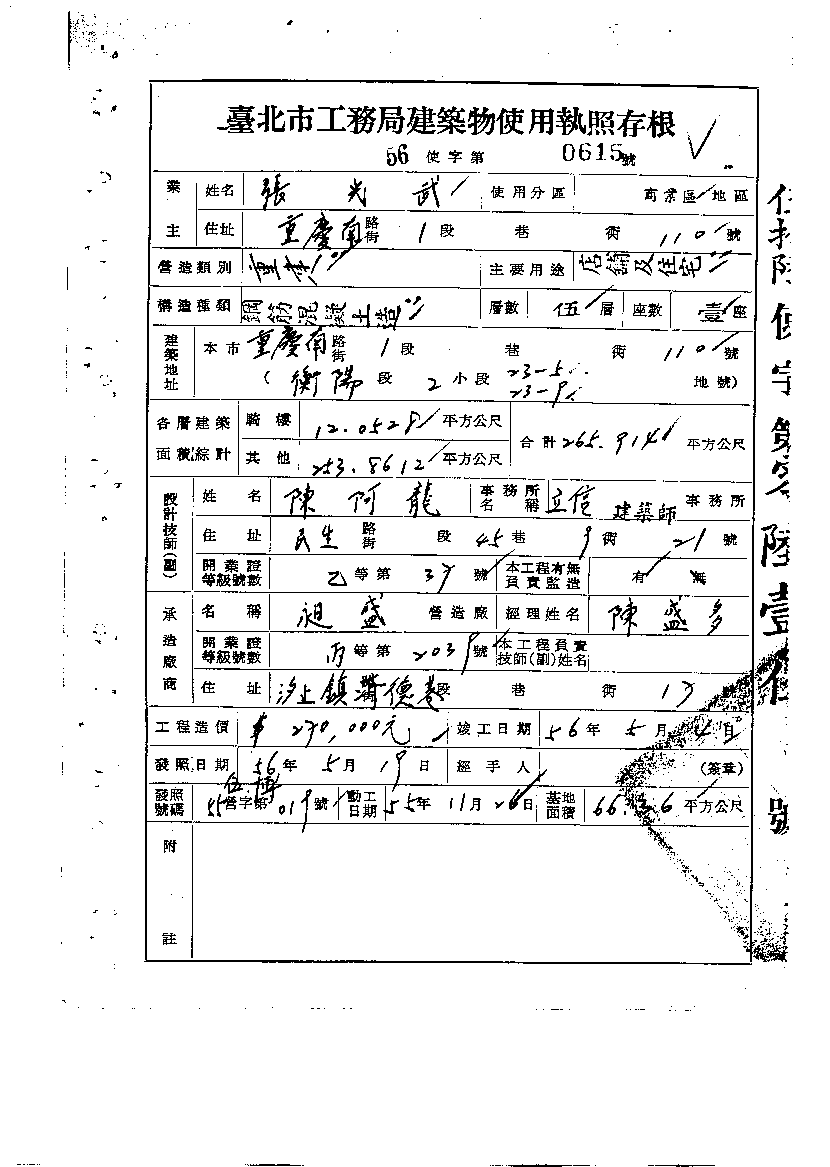 臺北市工務局建築物使用執照存根
56 使字第 0615號
業主 姓名 張光武 使用分區 商業區 地區
住址 重慶南路街 1段 巷 衖 110號
營造類別 重建 主要用途 店舖及住宅
構造種類 鋼筋混凝土造 層數 伍層 座數 壹座
建築地址 本市 重慶南路街 1段 巷 衖 110號
(衡陽段 2小段 23-5 23-9 地號)
各層建築面積綜計 騎樓 12.0528平方公尺 合計265.9140平方公尺
其他 253.8612平方公尺
設計技師(副) 姓名 陳阿龍 事務所名稱 立信 建築師 事務所
住址 民生路街 段 45巷 9衖 21號
開業證等級號數 乙等第 37號 本工程有無負責監造 有 無
承造廠商 名稱 昶盛 營造廠 經理姓名 陳盛多
開業證等級號數 丙等第 2039號 本工程負責技師(副)姓名
住址 汐止鎮 德巷段 巷 衖 17號
工程造價 270,000元 竣工日期 56年 5月 4日
發照日期 56年 5月 19日 經手人 (簽章)
發照號碼 55營字第 019號 動工日期 55年 11月 26日 基地面積 66. 6平方公尺
附註
使字第零陸壹伍號